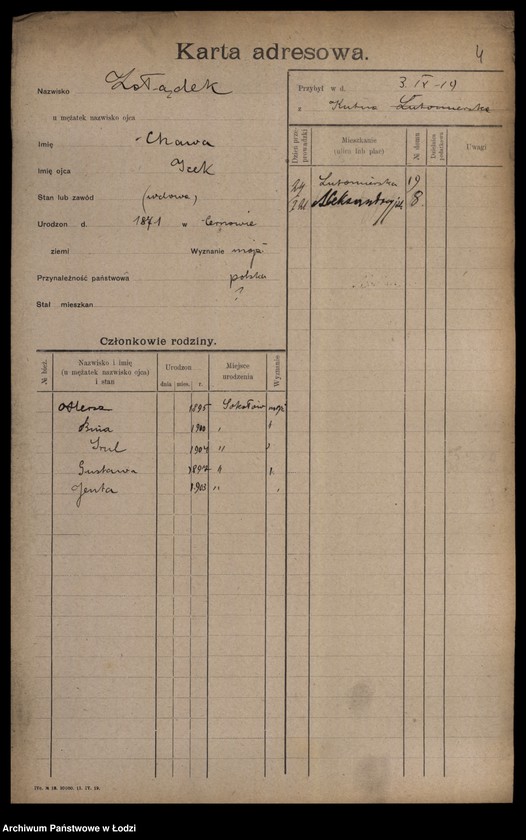 4
Karta adresowa.
Nazwisko Żołądek
u mężatek nazwisko ojca
Imię Chawa
Imię ojca Icek
Stan lub zawód (wdowa)
Urodzon d. 1871 w
ziemi Wyznanie mojż
Przynależność państwowa polska
Stał mieszkan ?
Przybył w d. 3 IX-19
z Kutna Lutomierska
Dzień przeprowadzki Mieszkanie (ulica lub plac) № domu Dzielnica podatkowa Uwagi
Lutomierska 19
Aleksandryjsk 8.
Członkowie rodziny.
№ bież. Nazwisko i imię (u mężatek nazwisko ojca) i stan Urodzon dnia mies. r. Miejsce urodzenia Wyznanie
1895 Sokołów mojż
Bina 1900 "
Srul 1904 "
Gustawa 1897 "
Jenta 1903 "
Archiwum Państwowe w Łodzi